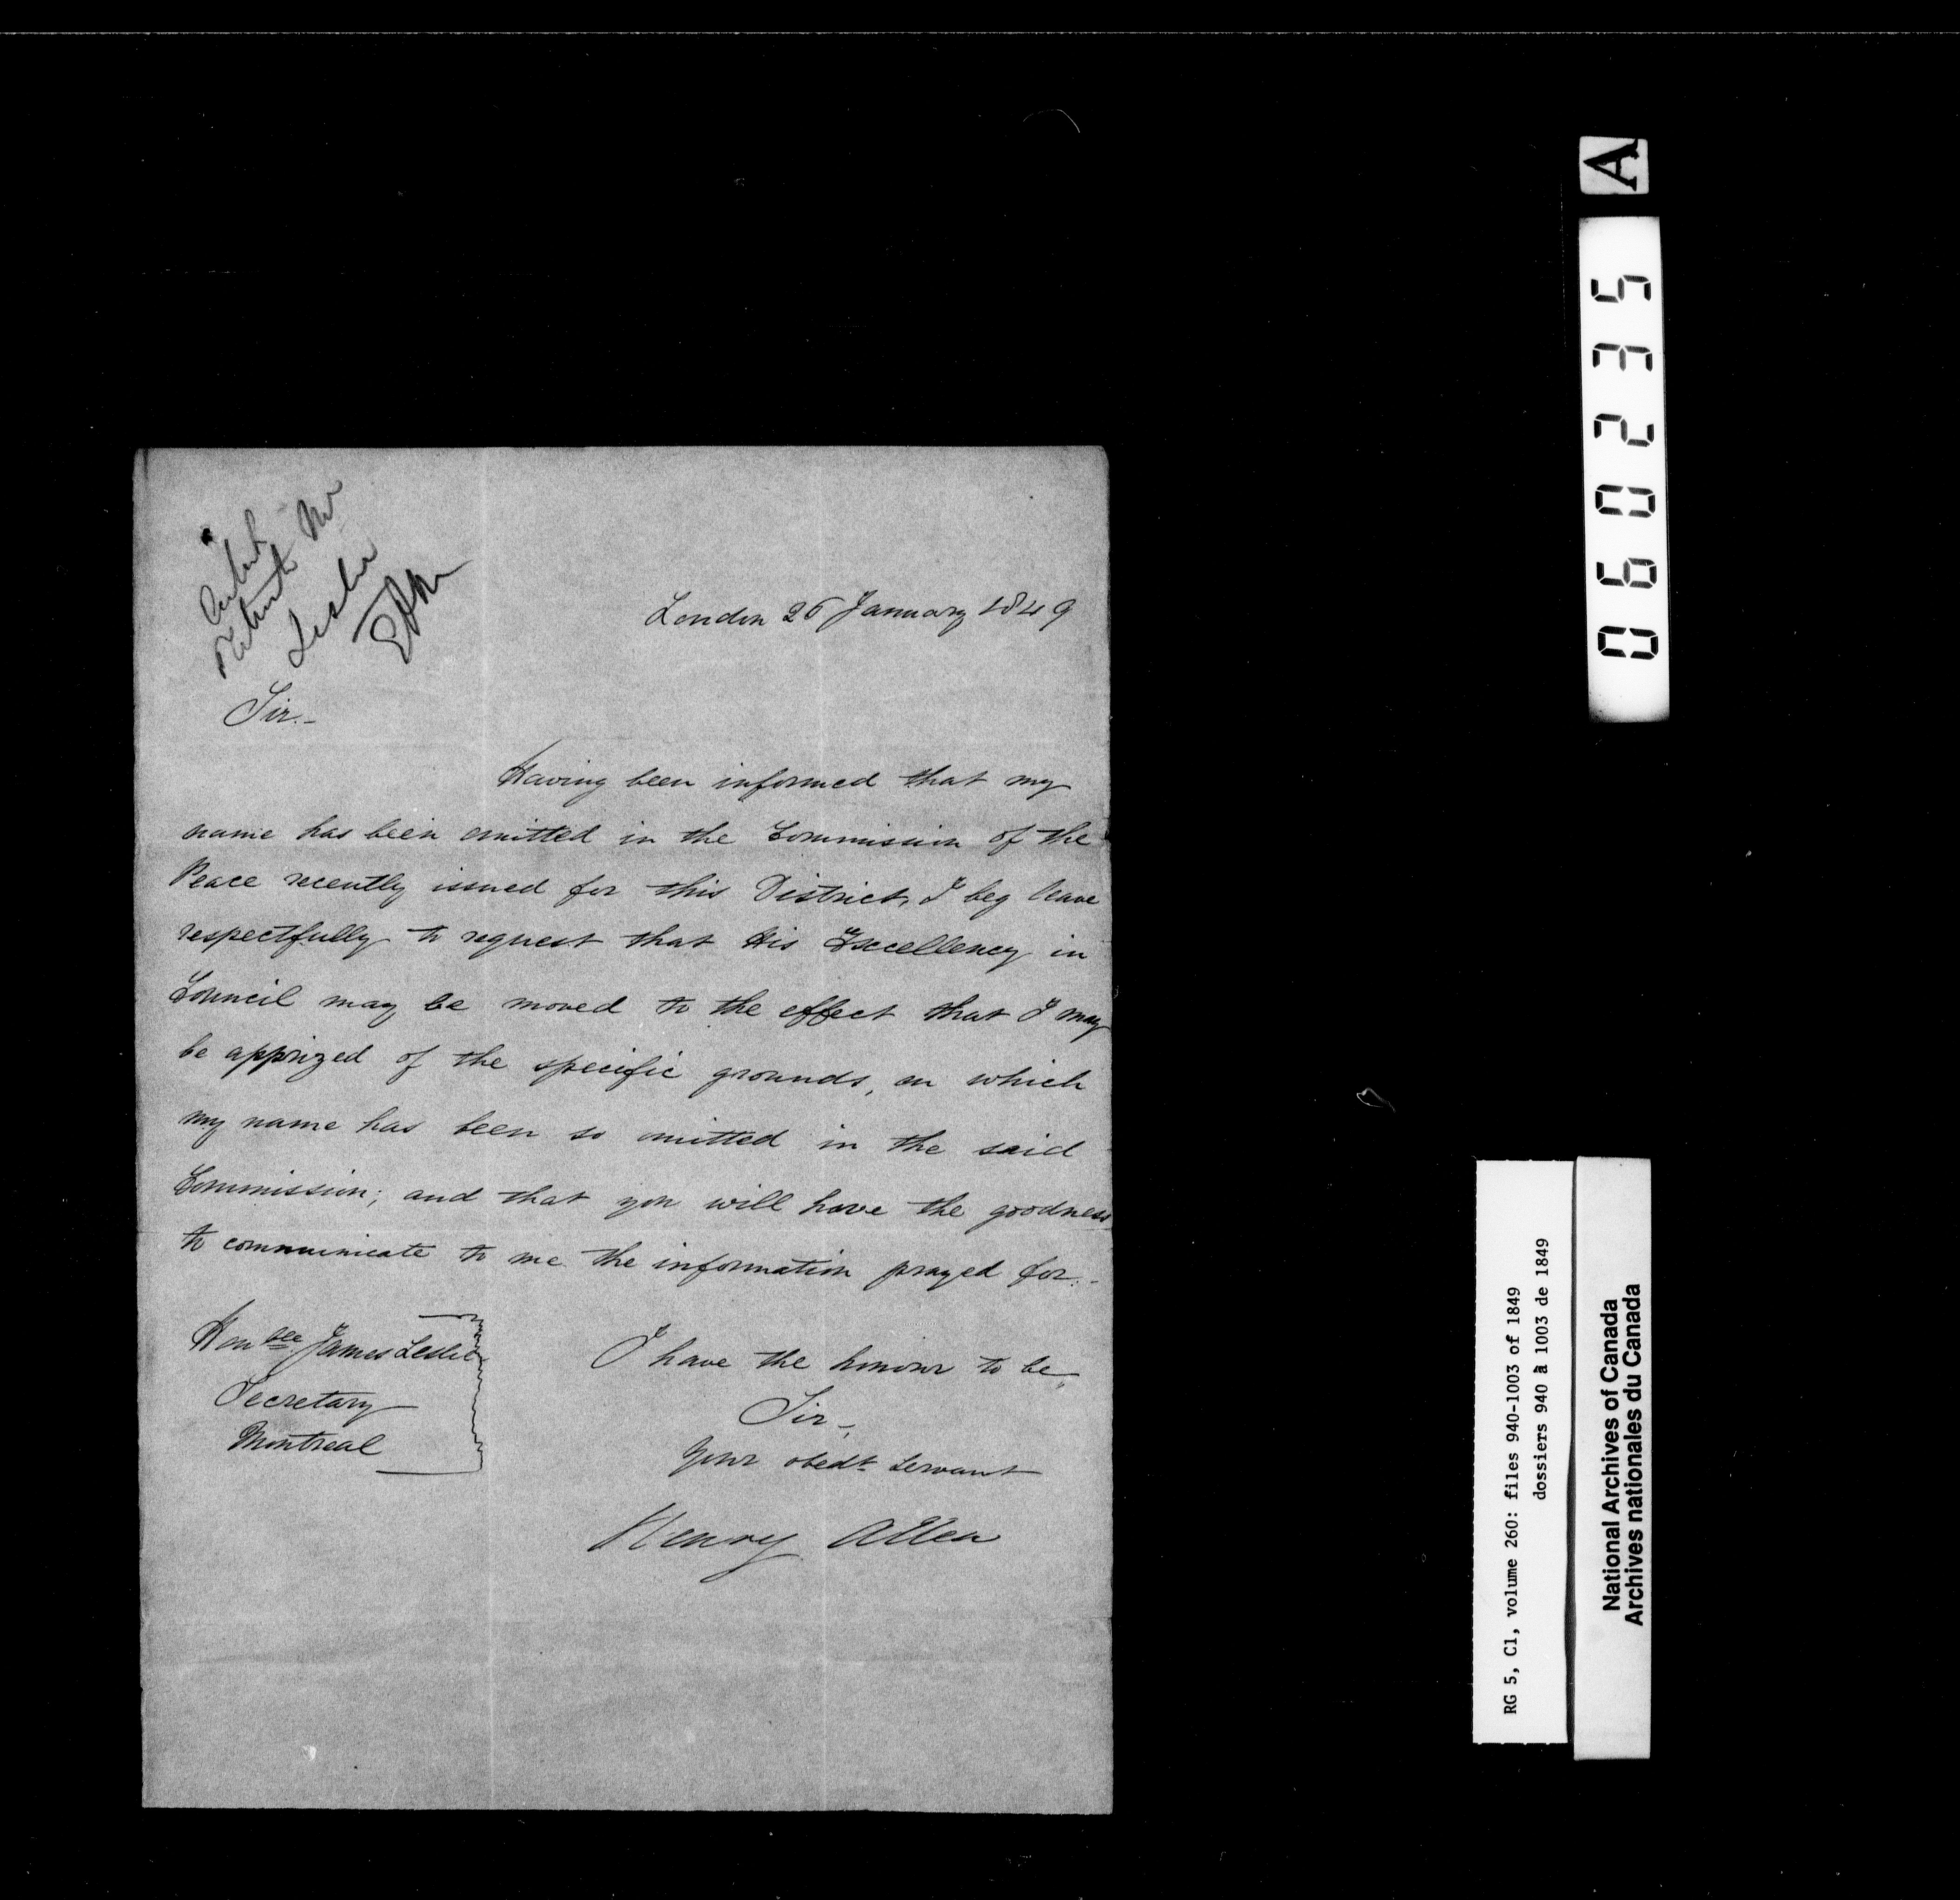 Mr
Leslie
London 26 January 1849
Sir.-
Having been informed that my
name has been omitted in the Commission of the
Peace recently issued for this District, I beg leave
respectfully to request that His Excellency in
Council may be moved to the effect that I may
be apprized of the specific grounds, on which
my name has been so omitted in the said
Commission; and that you will have the goodness
to communicate to me the information prayed for.-
Honble James Leslie
Secretary
Montreal
I have the honour to be,
Sir-,
Your obedt Servant
Henry Allen
A
060235
RG 5, C1, volume 260: files 940-1003 of 1849
dossiers 940 à 1003 de 1849
National Archives of Canada
Archives nationales du Canada